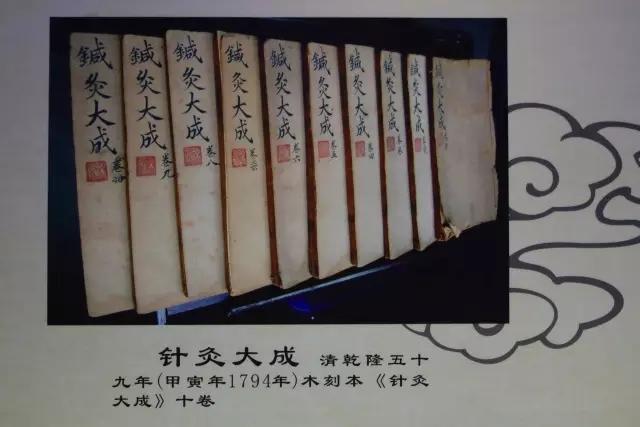 鍼灸大成
鍼灸大成 卷九
鍼灸大成 卷八
鍼灸大成
鍼灸大成 卷六
鍼灸大成 卷五
鍼灸大成 卷四
鍼灸大成
鍼灸大成
鍼灸大成
针灸大成 清乾隆五十
九年(甲寅年1794年)木刻本《针灸
大成》十卷